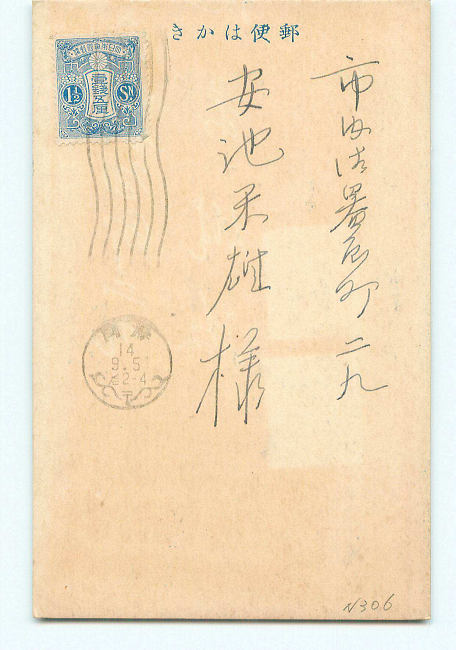 郵便はかき
市内法善辰町二九
安池栄雄様
大日本帝國郵便
壹錢五厘
1½ Sn
14
9.5
后2-4
N306